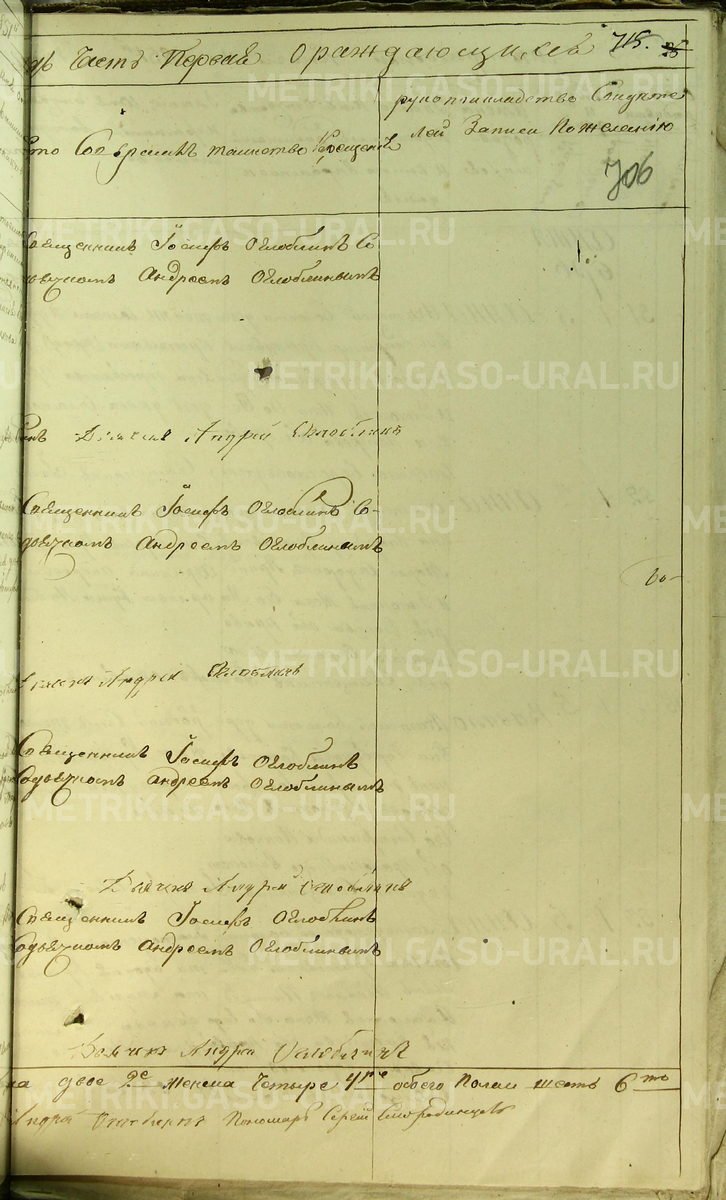 Часть Первая ораждающихся 715.
рукоприкладство Свидете
лей Записи По желанію
кто Совершалъ таинство Крещенія
706
Священникъ Іосифъ Оглоблинъ Со
дьячкомъ Андреемъ Оглоблинымъ
Дьячекъ Андрей Оглоблинъ
Священникъ Іосифъ Оглоблинъ Со-
дьячкомъ Андреемъ Оглоблинымъ
Дьячекъ Андрей Оглоблинъ
Священникъ Іосифъ Оглоблинъ
Содьячкомъ Андреемъ Оглоблинымъ
Дьячекъ Андрей Оглоблинъ
Священникъ Іосифъ Оглоблинъ
Содьячкомъ Андреемъ Оглоблинымъ
Дьячекъ Андрей Оглоблинъ
двое 2е женска Четыре 4ре обоего Полам шесть 6ть
Андрей Оглоблинъ Пономарь Сергей Смородинцевъ
METRIKI.GASO-URAL.RU